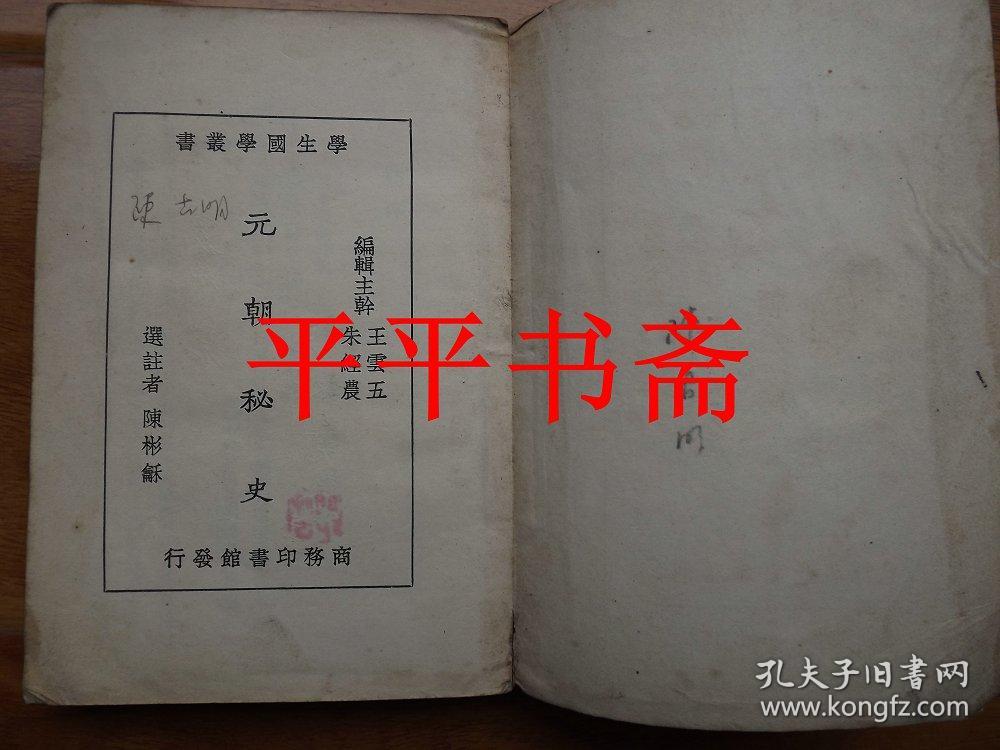 學生國學叢書
編輯主幹
王雲五
朱經農
元朝秘史
選註者 陳彬龢
商務印書館發行
陳志明
平平书斋
孔夫子旧书网
www.kongfz.com